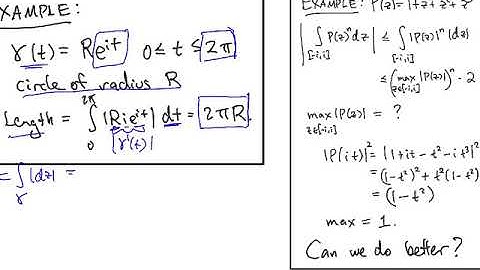 EXAMPLE:
γ(t) = Re^{it} 0 ≤ t ≤ 2π
circle of radius R
Length = ∫_0^{2π} |Rie^{it}| dt = 2πR.
|γ'(t)|
= ∫_γ |dz| =
EXAMPLE: P(z) = 1+z+z²+z³
|∫_{[-i,i]} P(z)^n dz| ≤ ∫_{[-i,i]} |P(z)|^n |dz|
≤ (max_{z∈[-i,i]} |P(z)|)^n · 2
max_{z∈[-i,i]} |P(z)| = ?
|P(it)|² = |1+it - t² - it³|²
= (1-t²)² + t²(1-t²)
= (1-t²)
max = 1.
Can we do better?